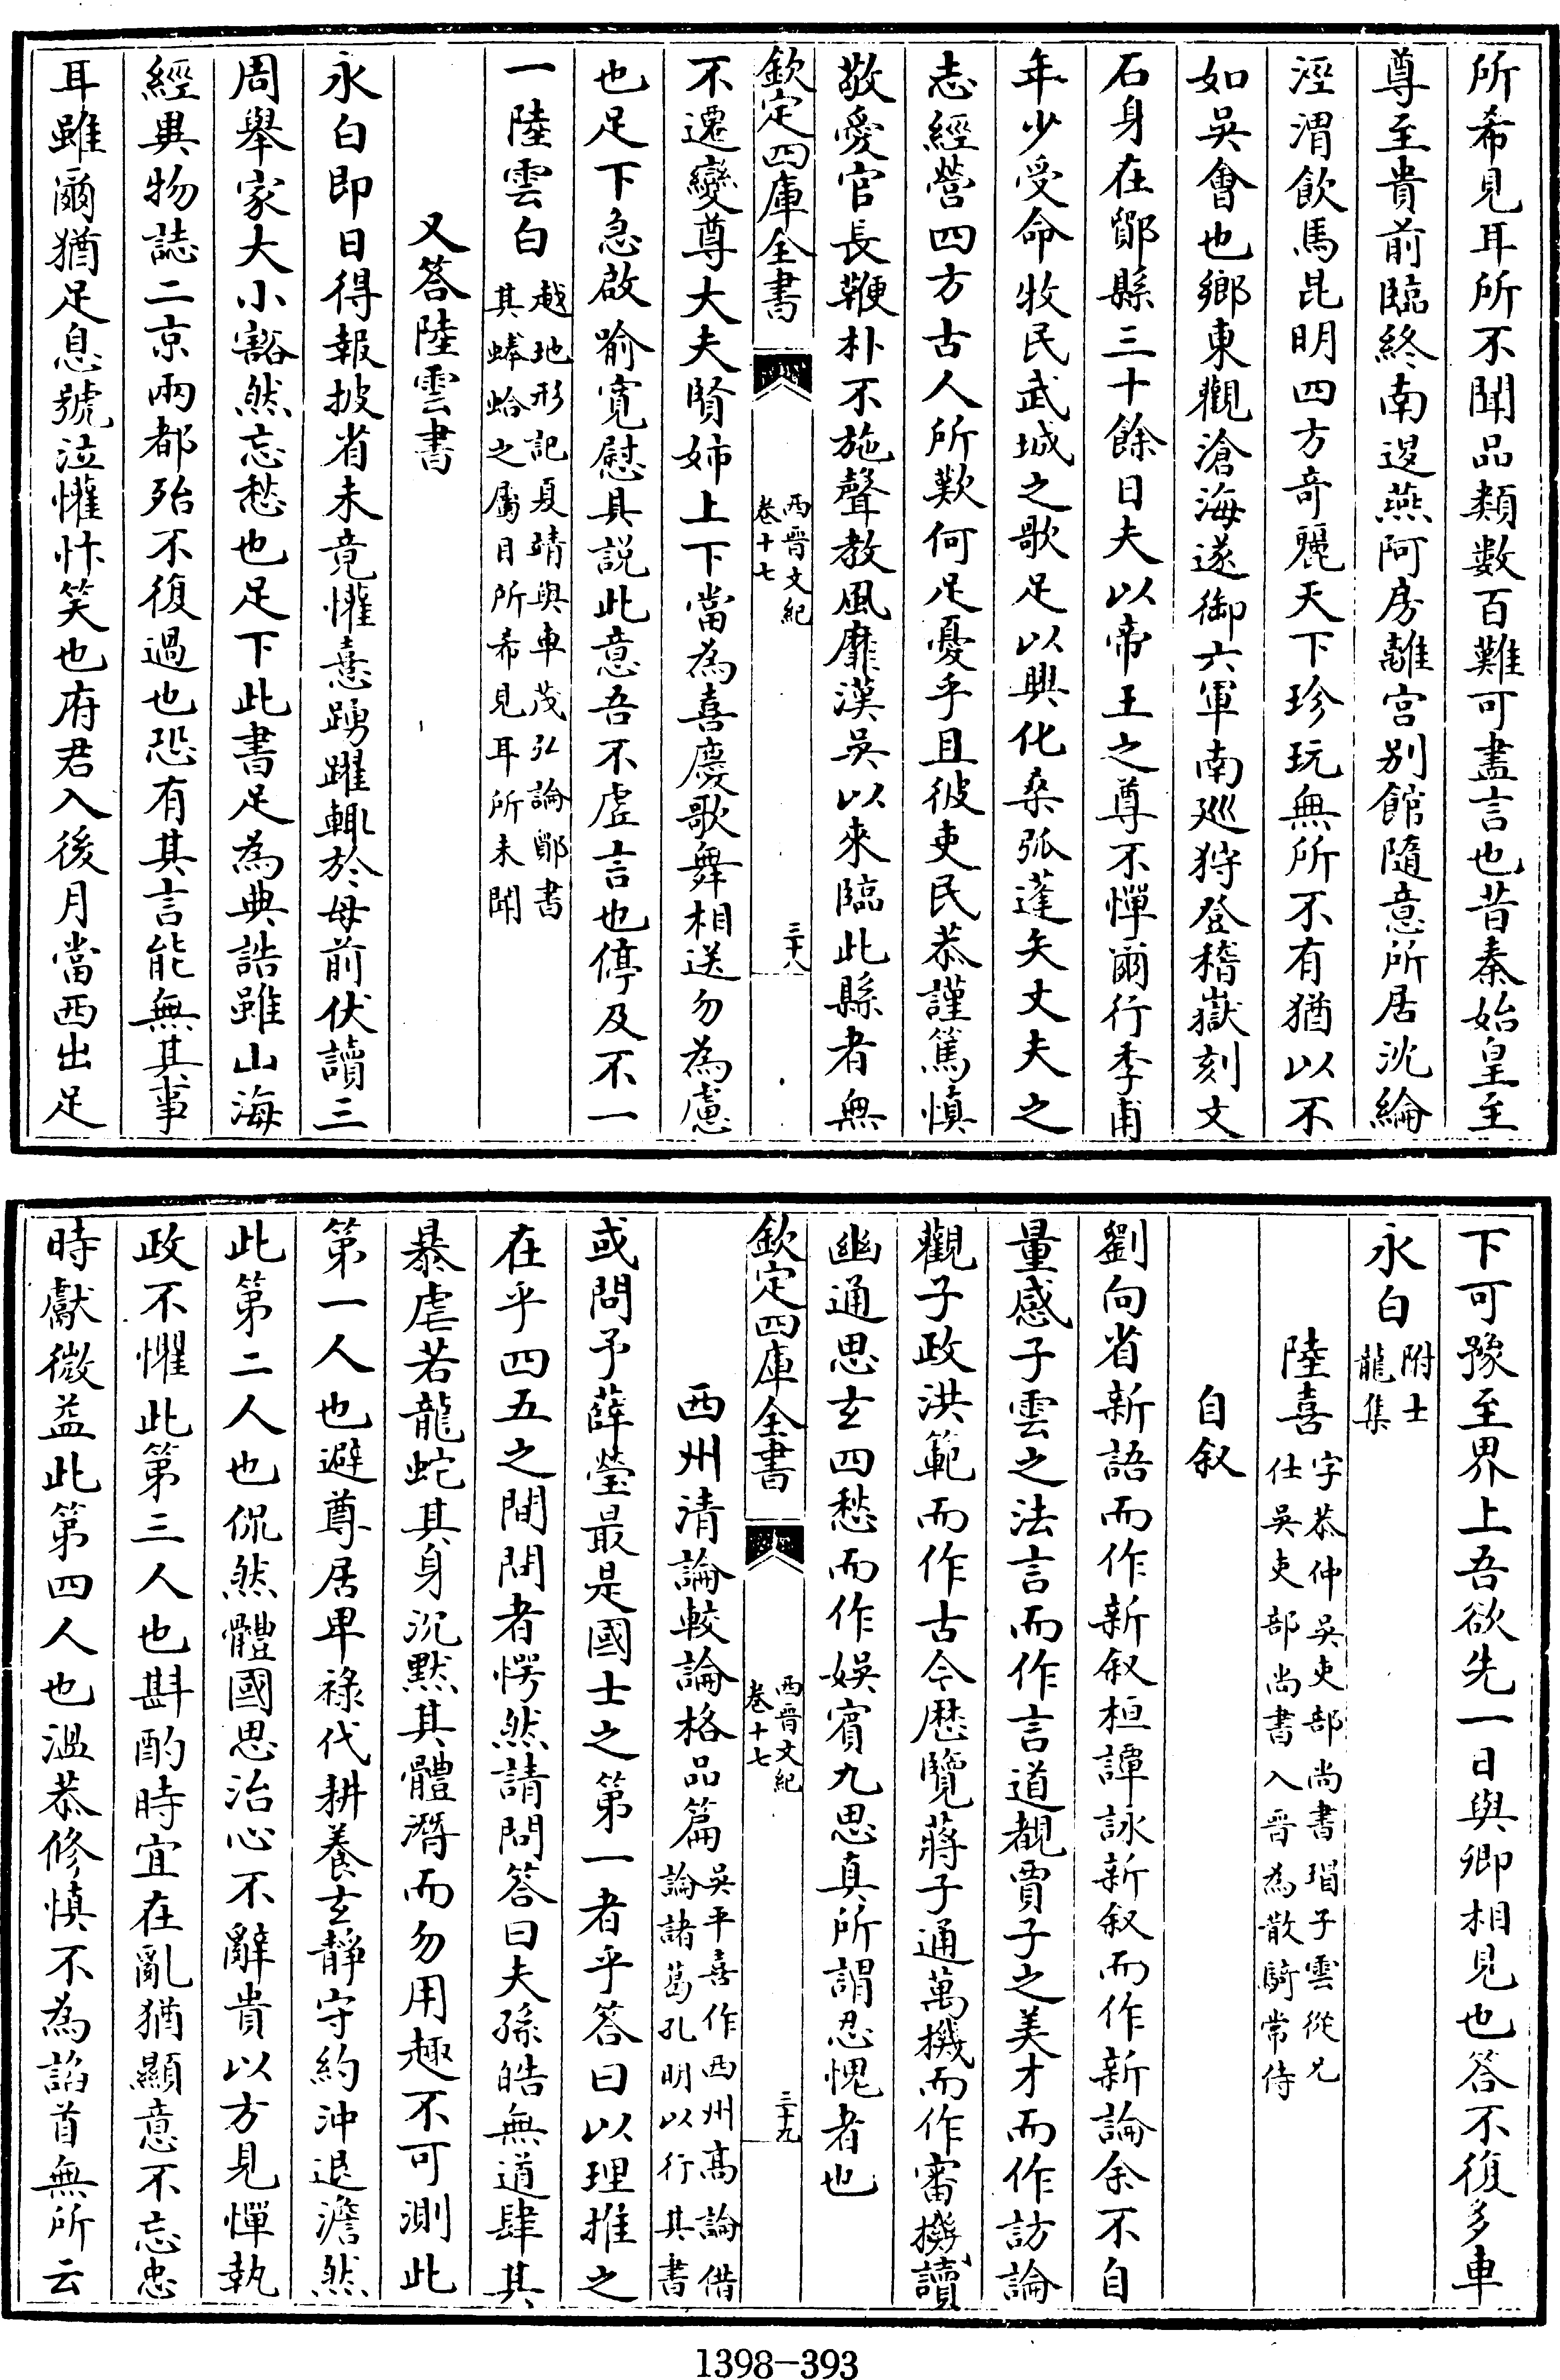 所希見耳所不聞品類數百難可盡言也昔秦始皇至
尊至貴前臨終南退燕阿房離宮别館隨意所居沈綸
涇渭飲馬昆明四方竒麗天下珍玩無所不有猶以不
如吳會也鄉東觀滄海遂御六軍南廵狩登稽嶽刻文
石身在鄮縣三十餘日夫以帝王之尊不憚爾行季甫
年少受命牧民武城之歌足以興化桑弧蓬矢丈夫之
志經營四方古人所歎何足憂乎且彼吏民恭謹篤慎
敬愛官長鞭朴不施聲教風靡漢吳以來臨此縣者無
欽定四庫全書
西晉文紀
卷十七
三十八
不遷變尊大夫賢姉上下當為喜慶歌舞相送勿為慮
也足下急啟喻寛慰具説此意吾不虚言也停及不一
一陸雲白
越地形記夏靖與車茂弘論鄮書
其蜯蛤之屬目所希見耳所未聞
又答陸雲書
永白即日得報披省未竟懽憙踴躍輒於母前伏讀三
周舉家大小豁然忘愁也足下此書足為典誥雖山海
經異物誌二京兩都殆不復過也恐有其言能無其事
耳雖爾猶足息號泣懽忭笑也府君入後月當西出足
下可豫至界上吾欲先一日與卿相見也答不復多車
永白
附士
龍集
陸喜
字恭仲吳吏部尚書瑁子雲從兄
仕吳吏部尚書入晉為散騎常侍
自叙
劉向省新語而作新叙桓譚詠新叙而作新論余不自
量感子雲之法言而作言道覩賈子之美才而作訪論
觀子政洪範而作古今歴覽蔣子通萬機而作審機讀
幽通思玄四愁而作娱賔九思真所謂忍愧者也
欽定四庫全書
西晉文紀
卷十七
三十九
西州清論較論格品篇
吳平喜作西州高論借
論諸葛孔明以行其書
或問予薛瑩最是國士之第一者乎答曰以理推之
在乎四五之間問者愕然請問答曰夫孫皓無道肆其
暴虐若龍蛇其身沉黙其體潛而勿用趣不可測此
第一人也避尊居卑祿代耕養玄靜守約沖退澹然
此第二人也侃然體國思治心不辭貴以方見憚執
政不懼此第三人也斟酌時宜在亂猶顯意不忘忠
時獻微益此第四人也溫恭修慎不為諂首無所云
1398-393